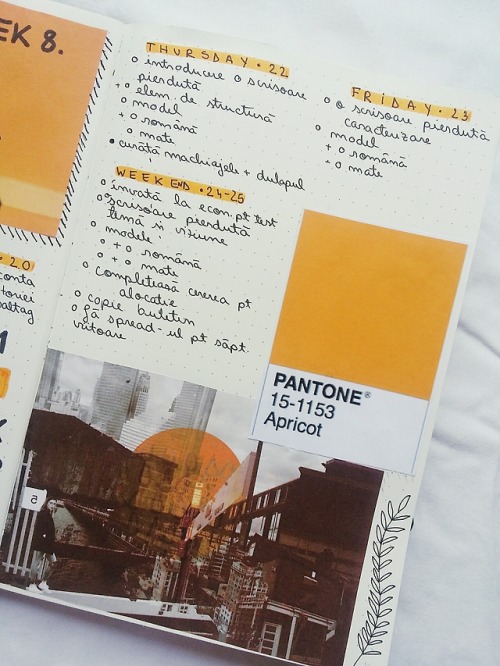 EK 8.
THURSDAY • 22
o introducere o scrisoare
pierdută
+ o elem. de structură
o model
+ o română
o mate
• curăță machiajele + dulapul
FRIDAY • 23
o o scrisoare pierdută
caracterizare
o model
+ o română
+ o mate
WEEKEND • 24-25
o învață la econ. pt test
o scrisoare pierdută
temă și viziune
o modele
o + o română
o + o mate
o completează cererea pt
alocație
o copie buletin
o fă spread-ul pt săpt.
viitoare
• 20
conta
toriei
saltag
PANTONE®
15-1153
Apricot
5